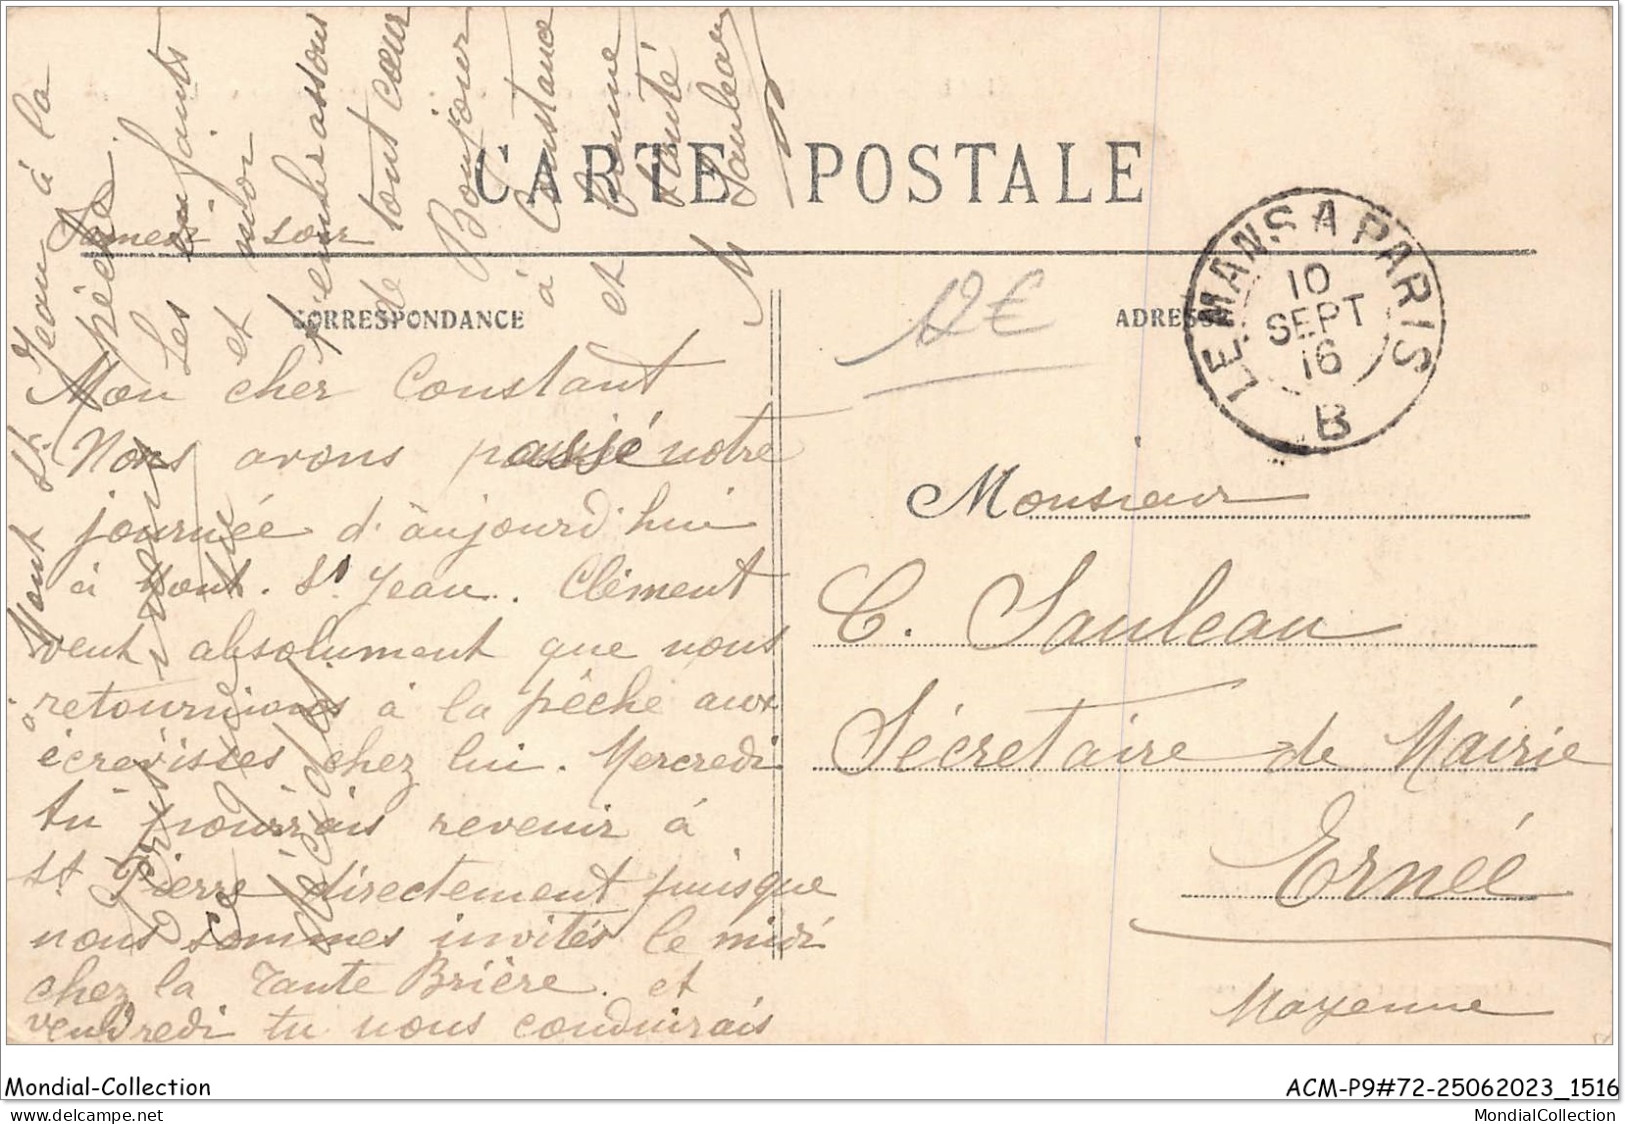 CARTE POSTALE
Samedi soir
CORRESPONDANCE
Mon cher Constant
Nous avons passé notre
journée d'aujourd'hui
à Mont. St. Jean. Clément
veut absolument que nous
retournions à la pêche aux
écrevisses chez lui. Mercredi
tu pourrais revenir à
St Pierre directement puisque
nous sommes invités le midi
chez la Tante Brière. et
vendredi tu nous conduirais
à Mont St. Jean à la
pêche.
Les enfants
et moi
t'embrassons
de tout cœur
Bonjour
à Constance
et bonne
santé
M Sauleau
12€
ADRESSE
LE MANS A PARIS
10
SEPT
16
B
Monsieur
C. Sauleau
Sécretaire de Mairie
Ernée
Mayenne
Mondial-Collection
ACM-P9#72-25062023_1516
MondialCollection.delcampe.net
MondialCollection